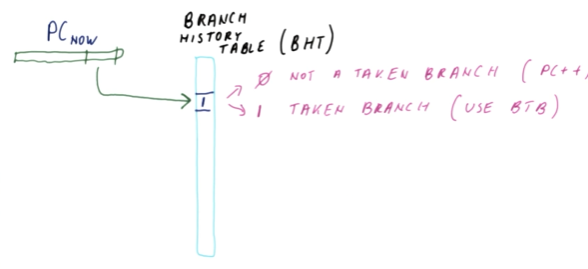 PC NOW
BRANCH
HISTORY
TABLE (BHT)
0 NOT A TAKEN BRANCH (PC++)
1
1 TAKEN BRANCH (USE BTB)